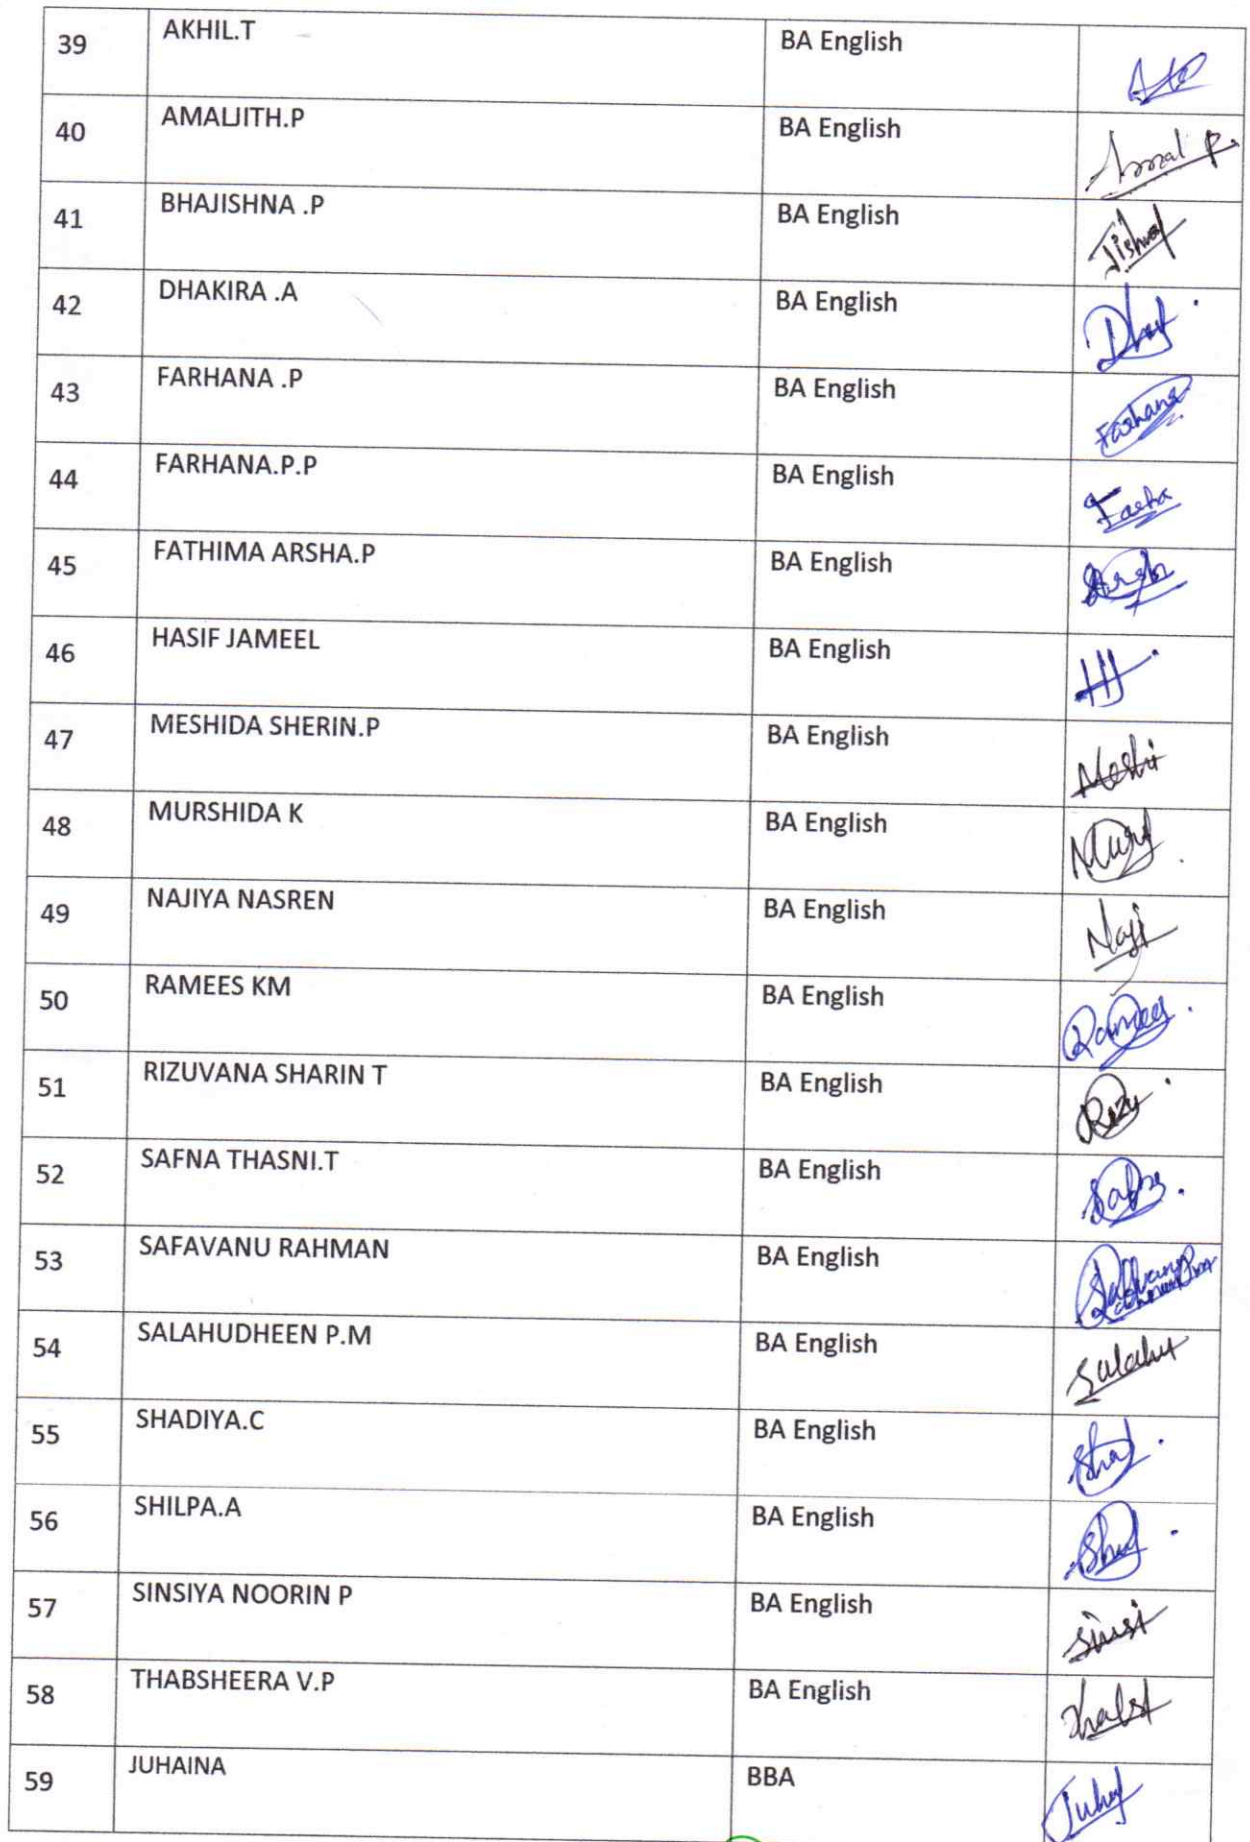 39 AKHIL.T BA English
40 AMALJITH.P BA English Amal P.
41 BHAJISHNA .P BA English Jishna
42 DHAKIRA .A BA English
43 FARHANA .P BA English Farhana
44 FARHANA.P.P BA English Farha
45 FATHIMA ARSHA.P BA English Arsha
46 HASIF JAMEEL BA English HJ
47 MESHIDA SHERIN.P BA English Meshi
48 MURSHIDA K BA English
49 NAJIYA NASREN BA English Naji
50 RAMEES KM BA English Ramees
51 RIZUVANA SHARIN T BA English Rizu
52 SAFNA THASNI.T BA English Safna
53 SAFAVANU RAHMAN BA English
54 SALAHUDHEEN P.M BA English Salahu
55 SHADIYA.C BA English Shad
56 SHILPA.A BA English
57 SINSIYA NOORIN P BA English Sinsi
58 THABSHEERA V.P BA English
59 JUHAINA BBA